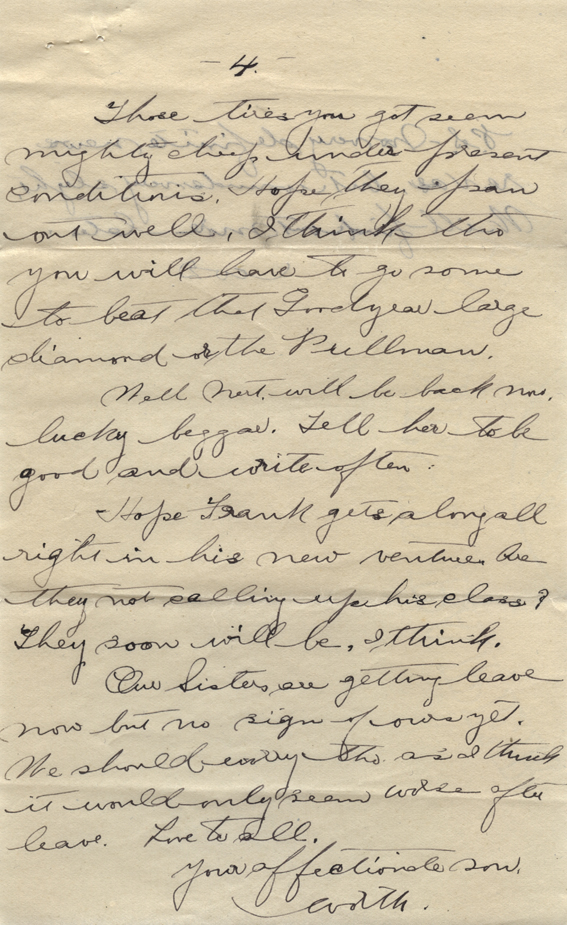 -4.-
Those tires you got seem
mighty cheap under present
conditions. Hope they span
out well, I think tho
you will have to go some
to beat that Goodyear large
diamond or the Pullman.
Well will be back now,
lucky beggar. Tell her to be
good and write often.
Hope Frank gets along all
right in his new venture. Are
they not calling up his class?
They soon will be, I think.
Our Sisters are getting leave
now but no sign of ours yet.
We should worry tho. as I think
it would only seem worse after
leave. Love to all.
Your affectionate son.
Worth.